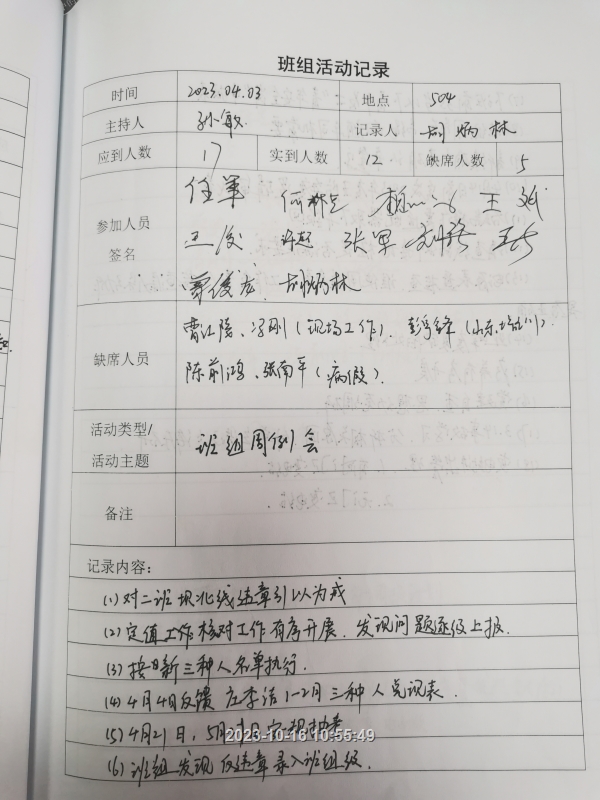 班组活动记录
时间 2023.04.03 地点 504
主持人 孙敏 记录人 胡炳林
应到人数 17 实到人数 12 缺席人数 5
参加人员
签名
任军 王斌
王俊 张军
胡炳林
缺席人员
曹江陵、冯刚(现场工作)、彭 (山东培训)
陈前鸿、张南平(病假)
活动类型/
活动主题
班组周例会
备注
记录内容:
(1)对二班 北线违章引以为戒
(2)定值工作核对工作有序开展,发现问题逐级上报.
(3)按 新三种人名单执行.
(4)4月4日反馈 1-2月三种人兑现表.
(5)4月21日,5月 日安规抽考
(6)班组发现 违章录入班组级.
2023-10-16 10:55:49